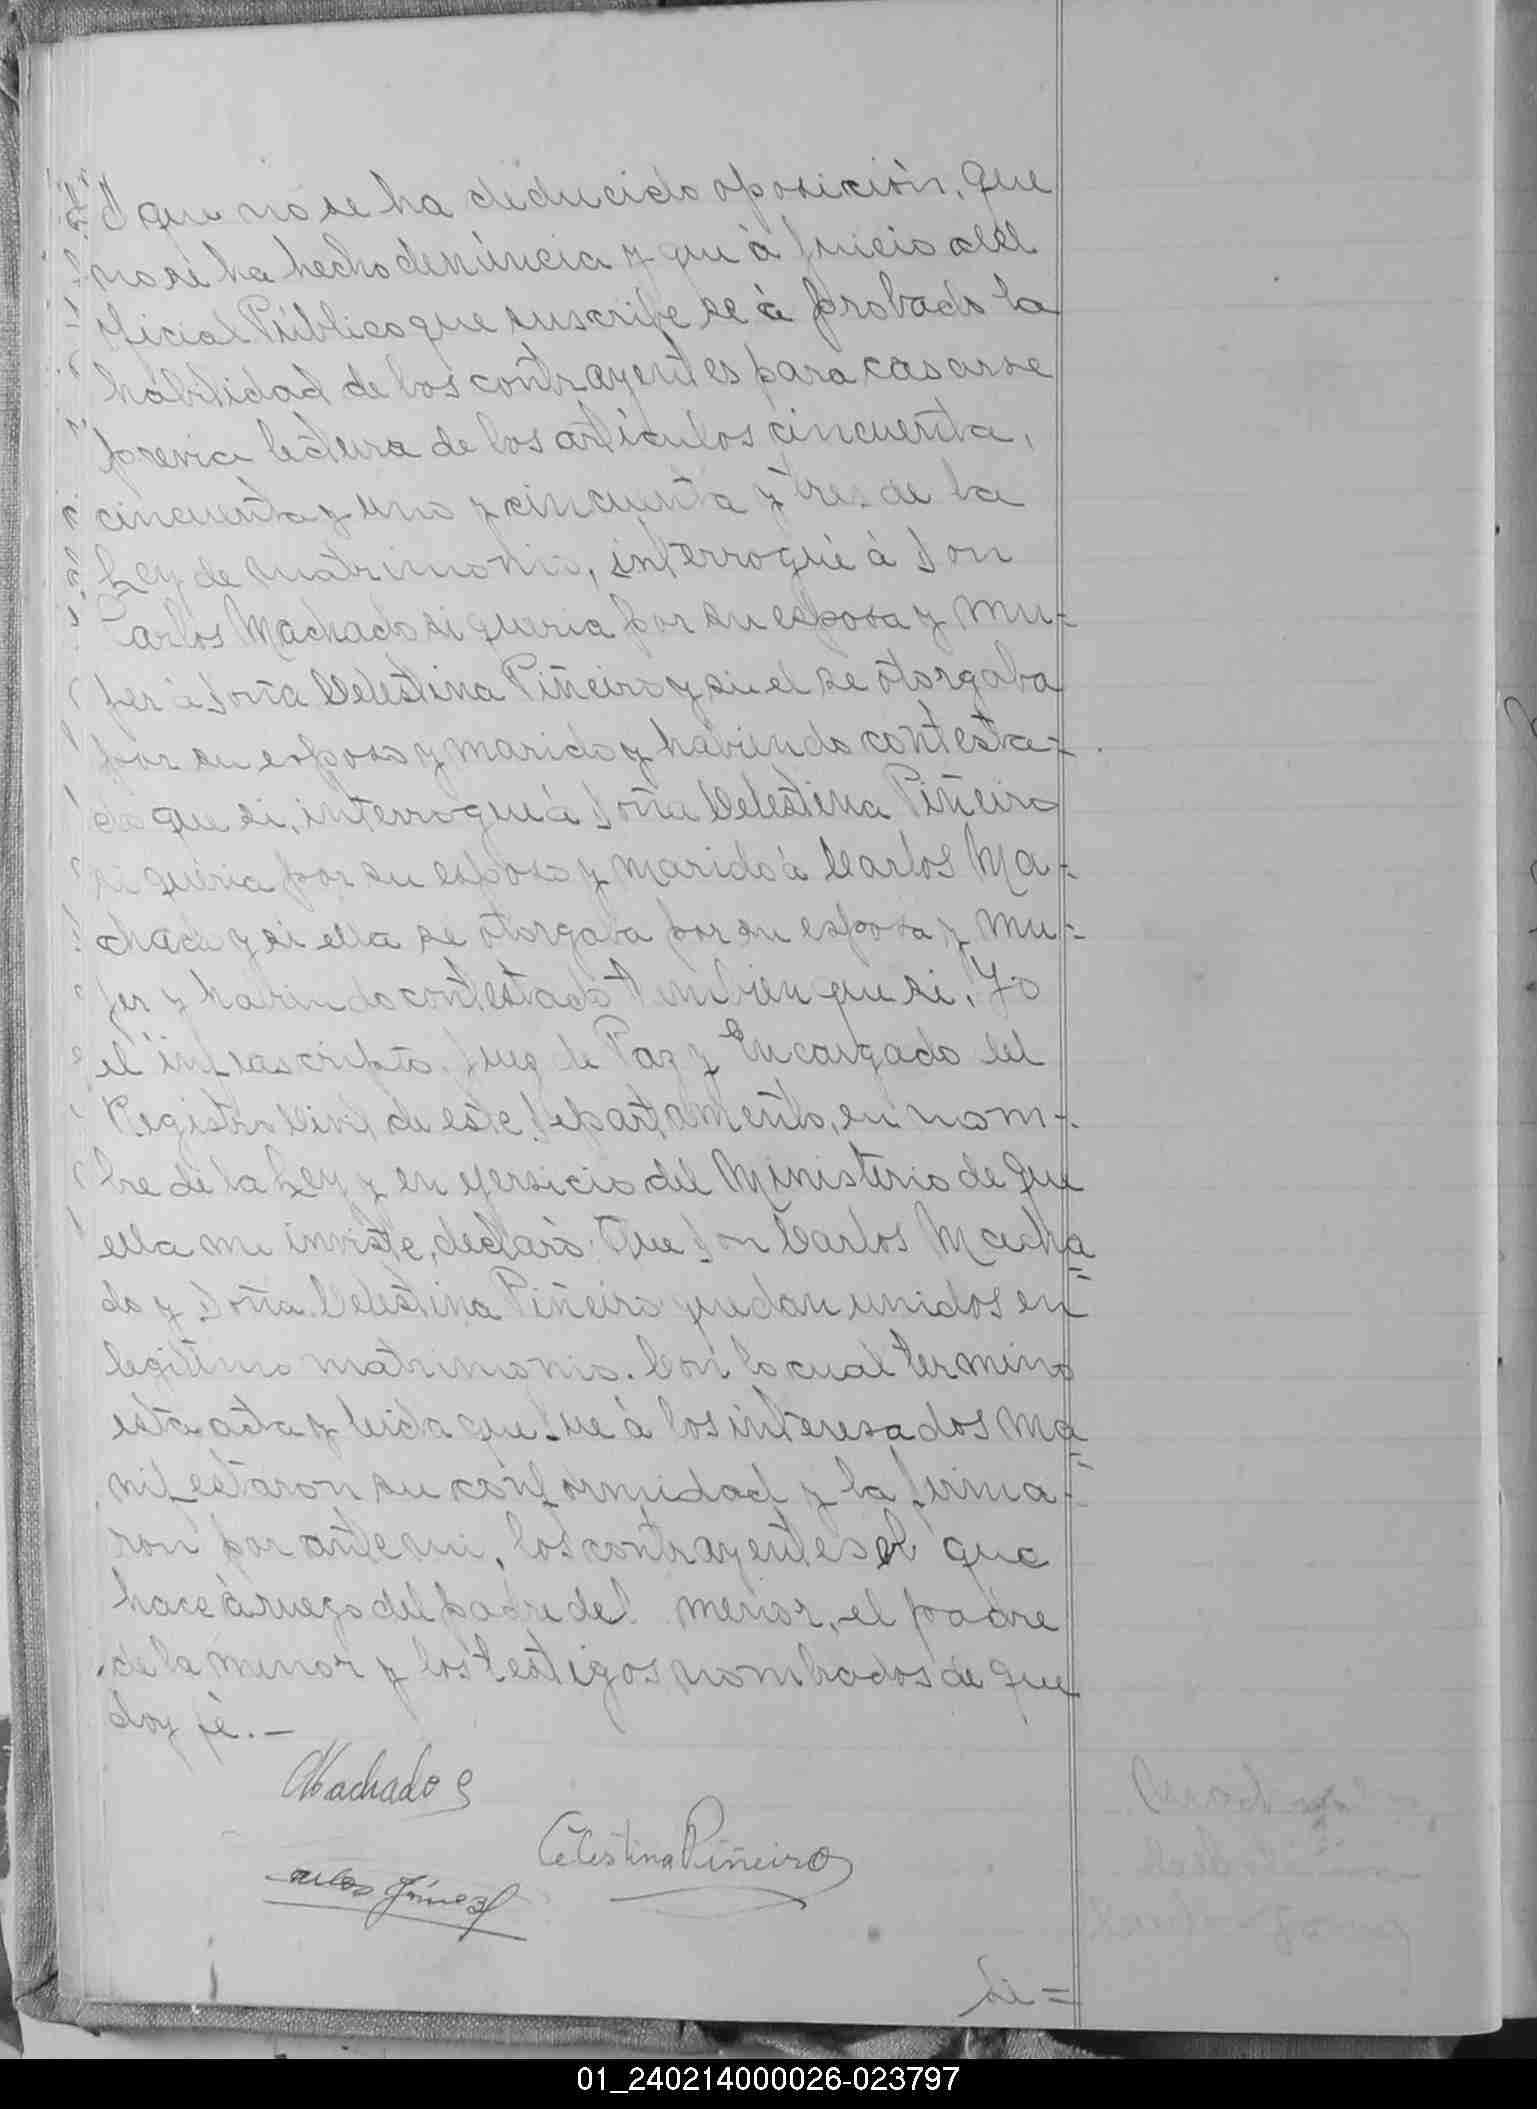 O que no se ha deducido oposición, que
no se ha hecho denúncia y que à juicio del
oficial Público que suscribe se à probado la
habilidad de los contrayentes para casarse
previa lectura de los artículos cincuenta,
cincuenta y uno y cincuenta y tres de la
Ley de matrimonio, interrogué à Don
Carlos Machado si queria por su esposa y mu-
jer à Doña Celestina Piñeiro y si el se otorgaba
por su esposo y marido y habiendo contesta-
do que si, interrogué à Doña Celestina Piñeiro
si queria por su esposo y marido à Carlos Ma-
chado y si ella se otorgaba por su esposa y mu-
jer y habiendo contestado tambien que si, Yo
el infrascripto Juez de Paz y Encargado del
Registro Civil de este Departamento, en nom-
bre de la Ley y en ejersicio del Ministerio de que
ella me inviste, declaro: Que Don Carlos Macha
do y Doña Celestina Piñeiro quedan unidos en
legitimo matrimonio. Con lo cual termino
esta acta y leida que fue à los interesados ma
nifestaron su conformidad y la firma-
ron por ante mi, los contrayentes el que
hace à ruego del padre del menor, el padre
de la menor y los testigos nombrados de que
doy fé. —
CMachado
Celestina Piñeiro
Carlos Gómez
Si =
01_240214000026-023797